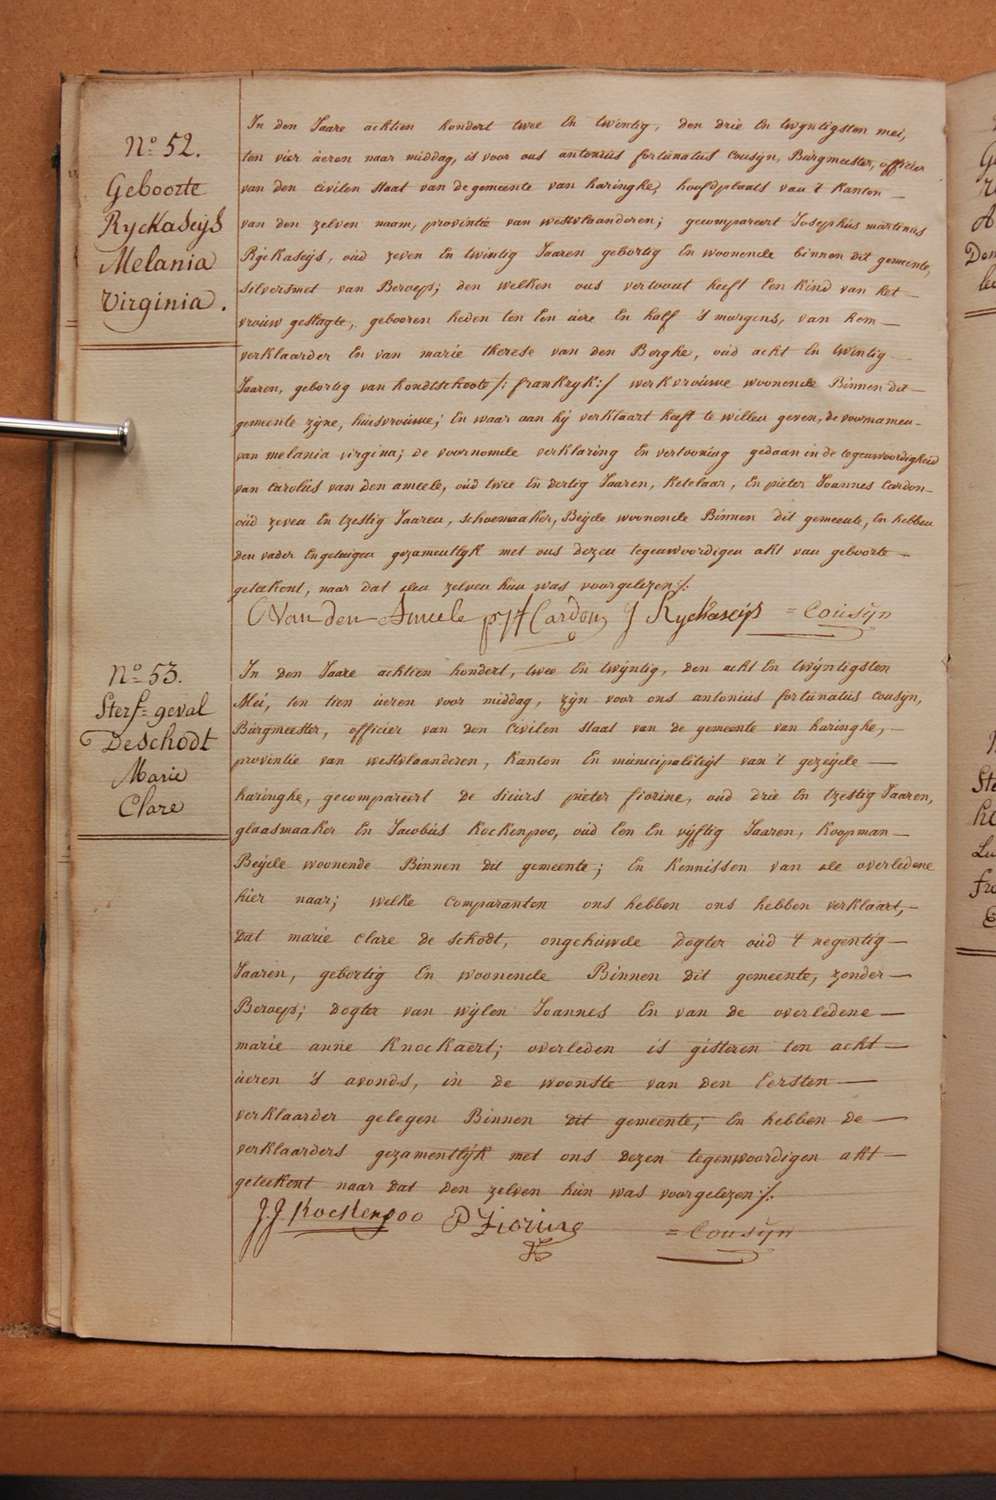 N.º 52.
Geboorte
RycKaseijs
Melania
Virginia.
In den Jaare achtien hondert twee En twintig, den drie En twyntigsten mei,
ten vier ùeren naar middag, is voor ons antoniùs fortùnatùs coùsijn, Bùrgmeester, officier
van den civilen staat van de gemeente van haringhe, hoofdplaats van 't Kanton
van den zelven naam, provintie van westvlaanderen; gecompareert Josephùs martinùs
RijcKaseijs, oùd zeven En twintig Jaaren gebortig En woonende binnen dit gemeente,
silversmet van Beroep; den welken ons vertoont heeft Een Kind van het
vroùw geslagte, gebooren heden ten Een ùere En half 's morgens, van hem
verklaarder En van marie therese van den Berghe, oùd acht En twintig
Jaaren, gebortig van hondtschoote /: frankryk :/ werkvroùwe woonende Binnen dit
gemeente zyne, huisvroùwe; En waar aan hy verklaart heeft te willen geven, de voornamen
van melania virgina; de voornomde verklaring En vertooning gedaan in de tegenwoordigheid
van carolùs van den ameele, oùd twee En dertig Jaaren, Ketelaar, En pieter Joannes Cardon
oùd zeven En tzestig Jaaren, schoemaaker, Beijde woonende Binnen dit gemeente, En hebben
den vader En getuigen gezamentlyk met ons dezen tegenwoordigen akt van geboorte
geteekent, naar dat den zelven hùn was voorgelezen ⁒.
C Van den Ameele p J Cardon J RycKaseijs = Coùsijn
N.º 53.
Sterf=geval
DeSchodt
Marie
Clare
In den Jaare achtien hondert, twee En twijntig, den acht En twijntigsten
Mei, ten tien ùeren voor middag, zijn voor ons antonius fortùnatùs coùsyn,
Bùrgmeester, officier van den Civilen staat van de gemeente van haringhe,
provintie van westvlaanderen, Kanton En municipaliteijt van 't gezeijde
haringhe, gecompareert de sieùrs pieter fiorine, oùd drie En tzestig Jaaren,
glaasmaaker En Jacobùs KocKenpoo, oùd Een En vijftig Jaaren, Koopman
Beijde woonende Binnen dit gemeente; En Kennissen van de overledene
hier naar; welke comparanten ons hebben ons hebben verklaart,
dat marie clare de schodt, ongehùwde dogter oùd 't negentig
Jaaren, gebortig En woonende Binnen dit gemeente, zonder
Beroep; dogter van wijlen Joannes En van de overledene
marie anne KnocKaert; overleden is gisteren ten acht
ùeren 's avonds, in de woonste van den Eersten
verklaarder gelegen Binnen dit gemeente; En hebben de
verklaarders gezamentlijk met ons dezen tegenwoordigen akt
geteekent naar dat den zelven hùn was voorgelezen ⁒.
J.J. KocKenpoo P Fiorine = Coùsijn